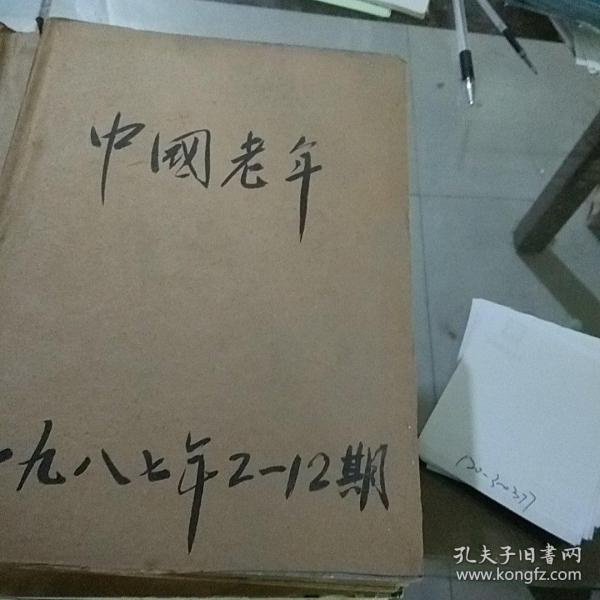 中國老年
一九八七年2-12期
120-30377
孔夫子旧書网
www.kongfz.com